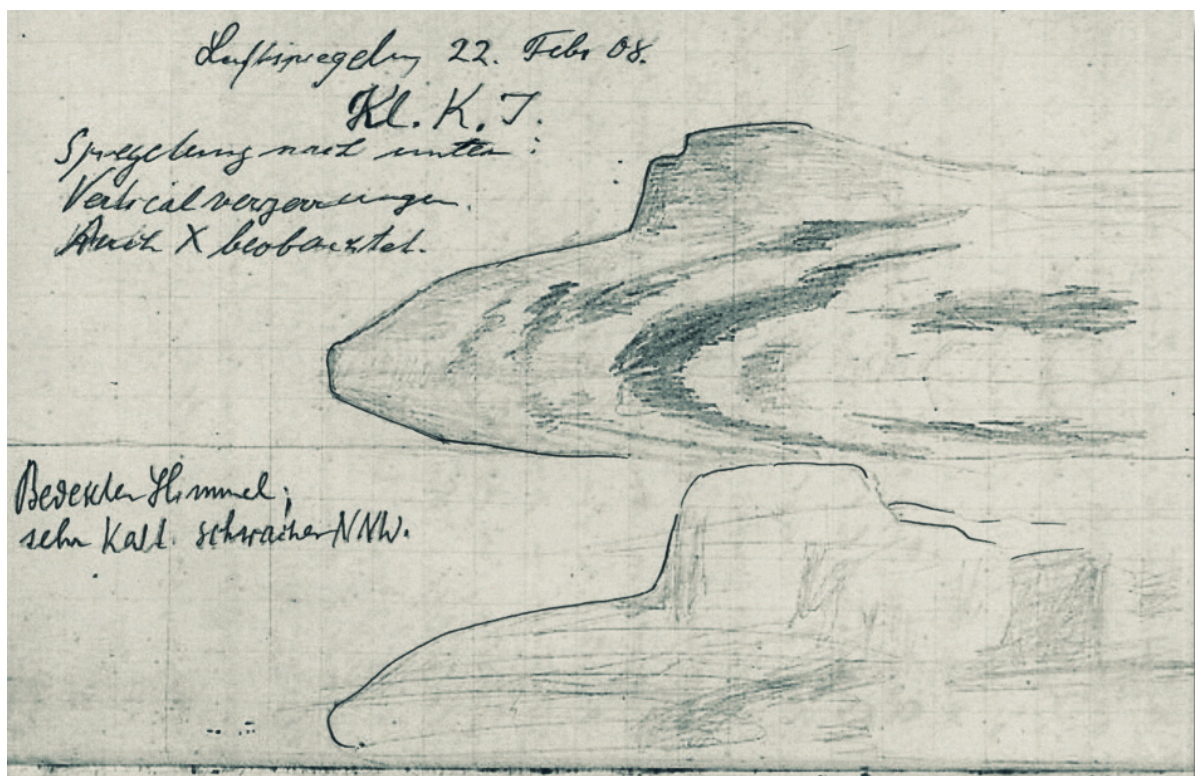 Luftspiegelung 22. Febr 08.
Kl. K. T.
Spiegelung nach unten:
Vertical verzerrungen.
Auch X beobachtet.
Bedeckter Himmel;
sehr Kalt. schwacher NNW.